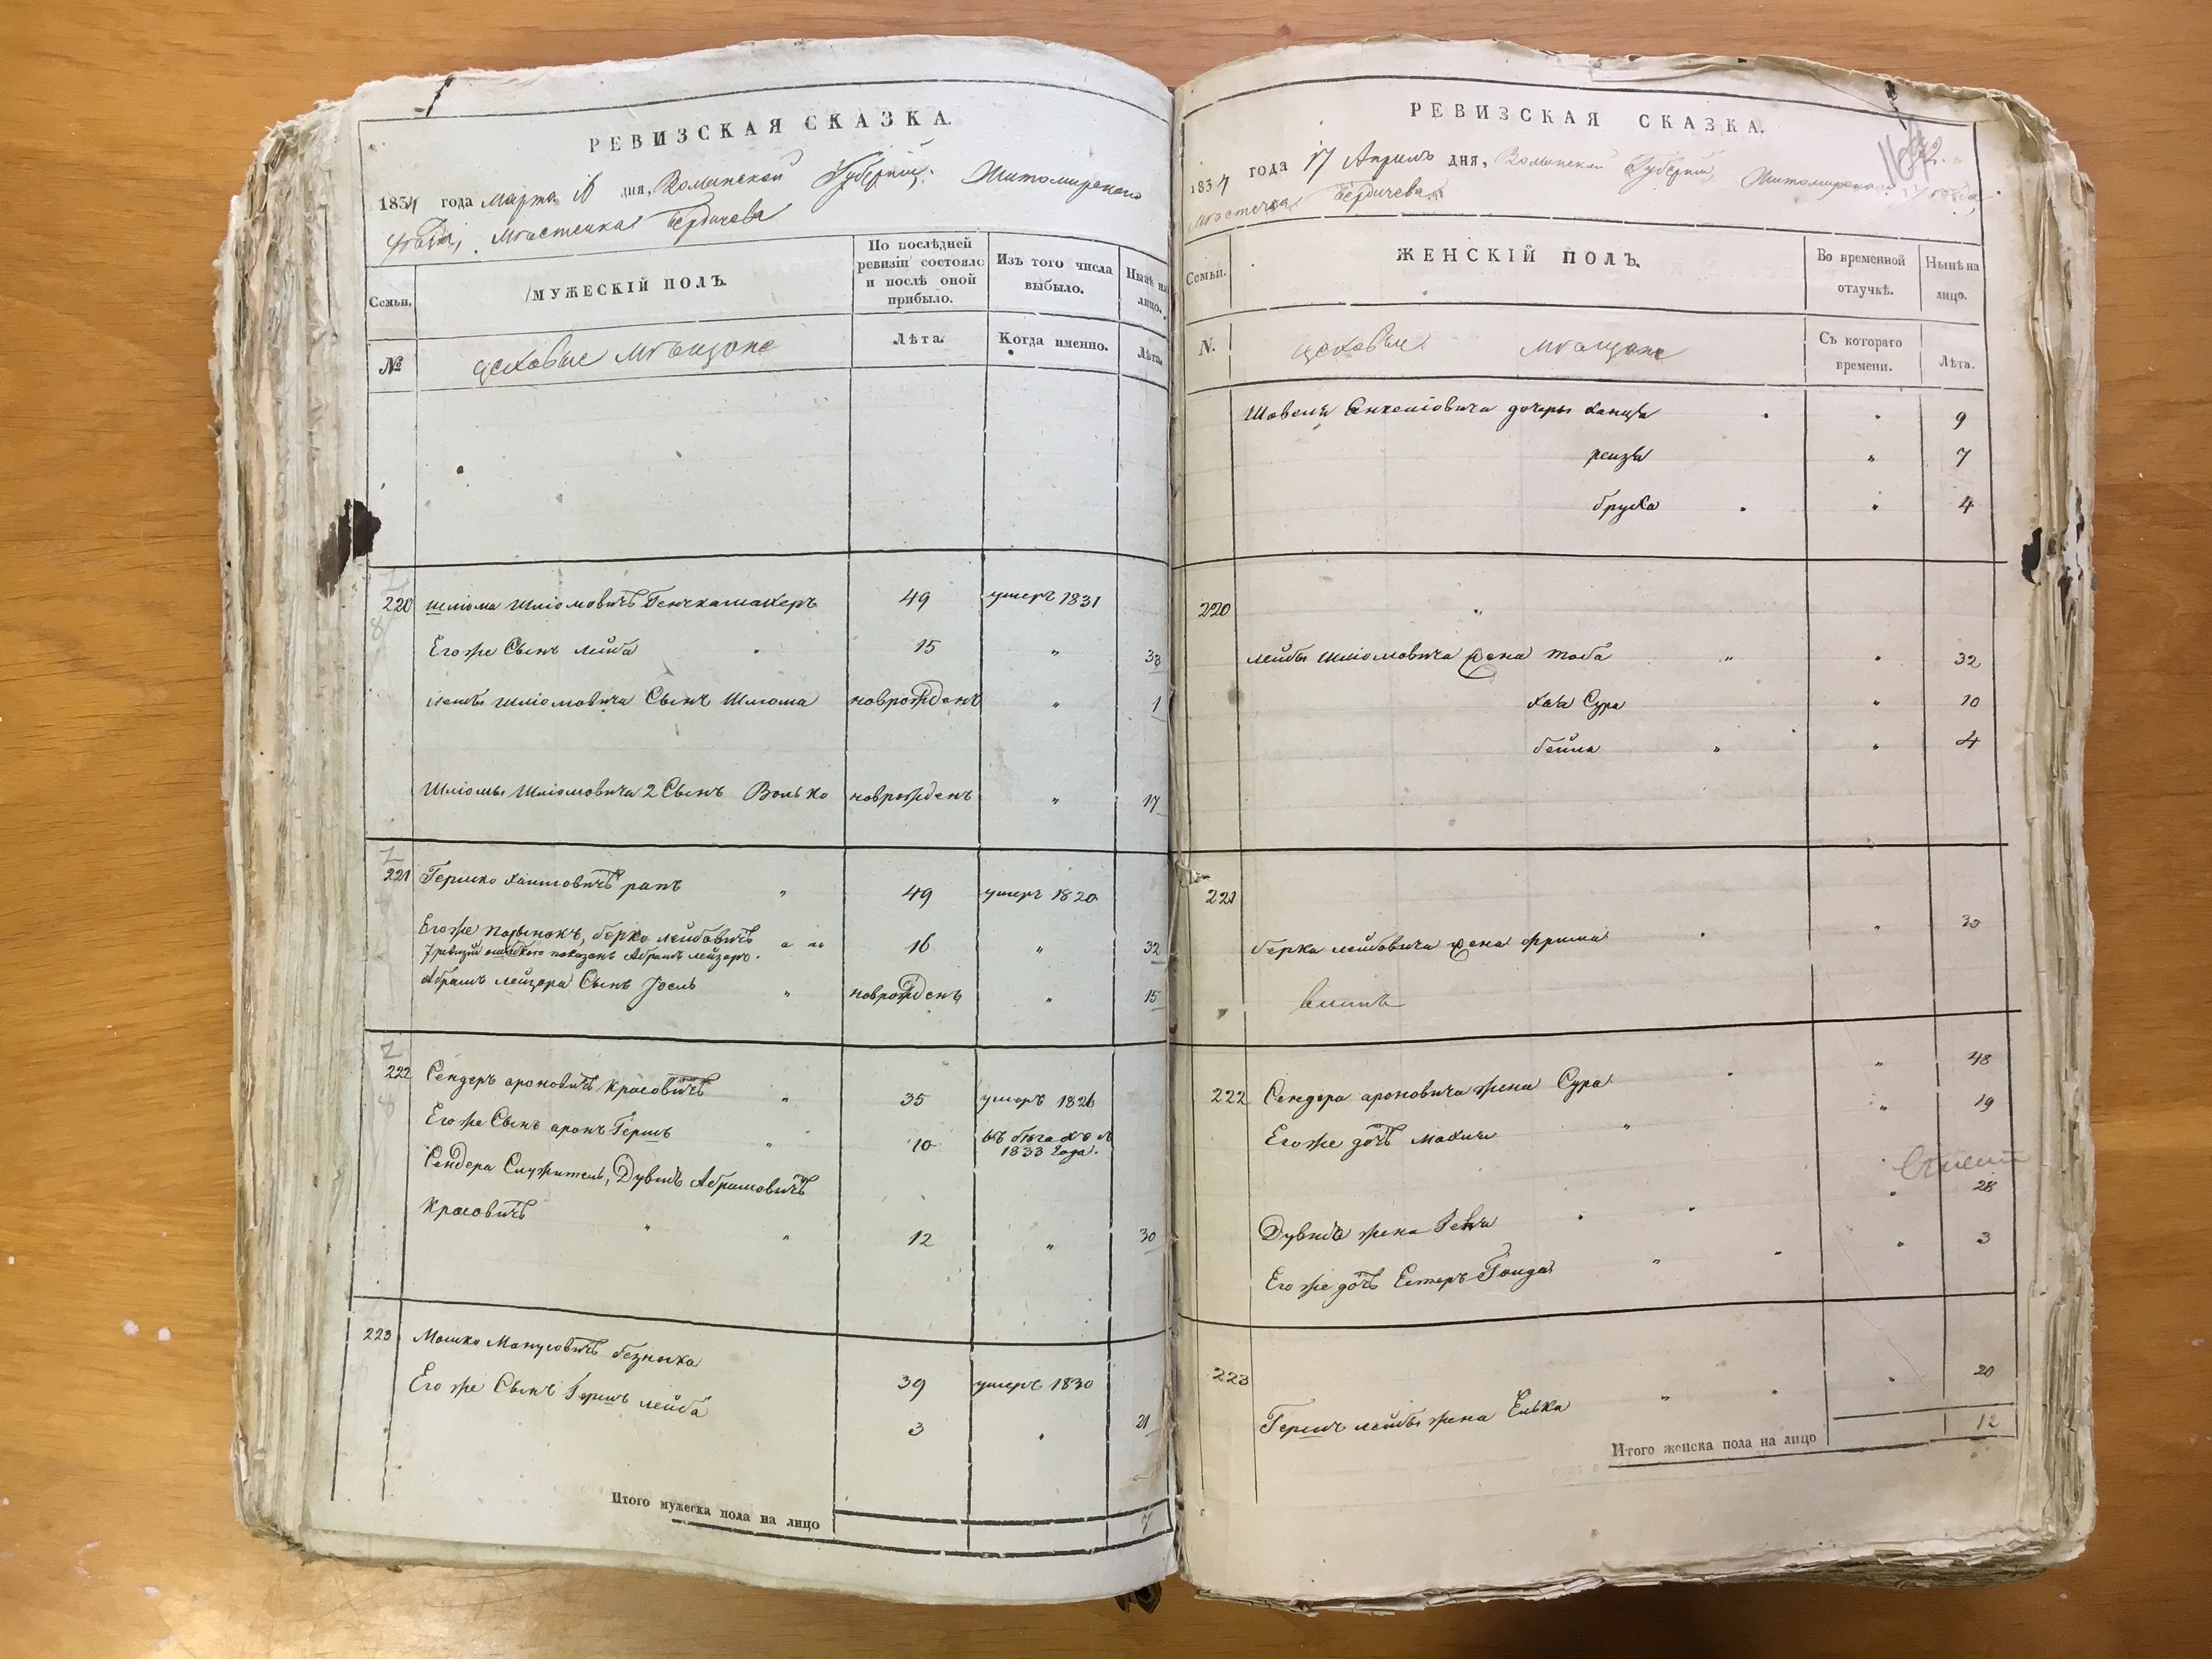 РЕВИЗСКАЯ СКАЗКА.
1834 года Марта 16 дня, Волынской Губерніи Житомирского
уѣзда, мѣстечка Бердичева
Семьи.
МУЖЕСКІЙ ПОЛЪ.
По послѣдней
ревизіи состояло
и послѣ оной
прибыло.
Изъ того числа
выбыло.
Нынѣ на
лицо.
№
цеховые мѣщане
Лѣта.
Когда именно.
Лѣта.
220 Шліома Шліомовичъ 49 умеръ 1831
Его же Сынъ лейба 15 „ 33
лейбы Шліомовича Сынъ Шліома новрожденъ „ 1
Шліомы Шліомовича 2 Сынъ Волько новрожденъ „ 17
221 Гершко хаимовичъ рапъ „ 49 умеръ 1820
Его же берко лейбовичъ 16 „ 32
7 ревизіи показанъ Абрамъ лейзоръ.
Абрамъ лейзора Сынъ Іось „ новрожденъ „ 15
222 Сендеръ ароновичъ Красовичъ „ 35 умеръ 1826
Его же Сынъ аронъ Гершъ „ 10 въ бѣгахъ
1833 года.
Сендера Служитель, Дувидъ Абрамовичъ
Красовичъ „ „ 12 „ 30
223 Мошко Манусовичъ безноска 39 умеръ 1830
Его же Сынъ Гершъ лейба 3 „ 21
Итого мужеска пола на лицо 7
РЕВИЗСКАЯ СКАЗКА.
1834 года 17 Апрель дня, Волынской Губерніи Житомирского уѣзда,
мѣстечка Бердичева
Семьи.
ЖЕНСКІЙ ПОЛЪ.
Во временной
отлучкѣ.
Нынѣ на
лицо.
N.
цеховые мѣщане
Съ котораго
времени.
Лѣта.
дочеры ханця „ 9
реизя „ 7
бруха „ 4
220 „
лейбы Шліомовича жена тоба „ „ 32
хая Сура „ 10
бейла „ „ 4
221
берка лейбовича жена фрима „ 30
222 Сендера ароновича жена Сура „ 48
Его же дочь малка „ „ 19
Дувидъ жена „ 28
Его же дочь Естеръ „ „ „ 3
223
Гершъ лейбы жена Елька „ „ 20
Итого женска пола на лицо 12